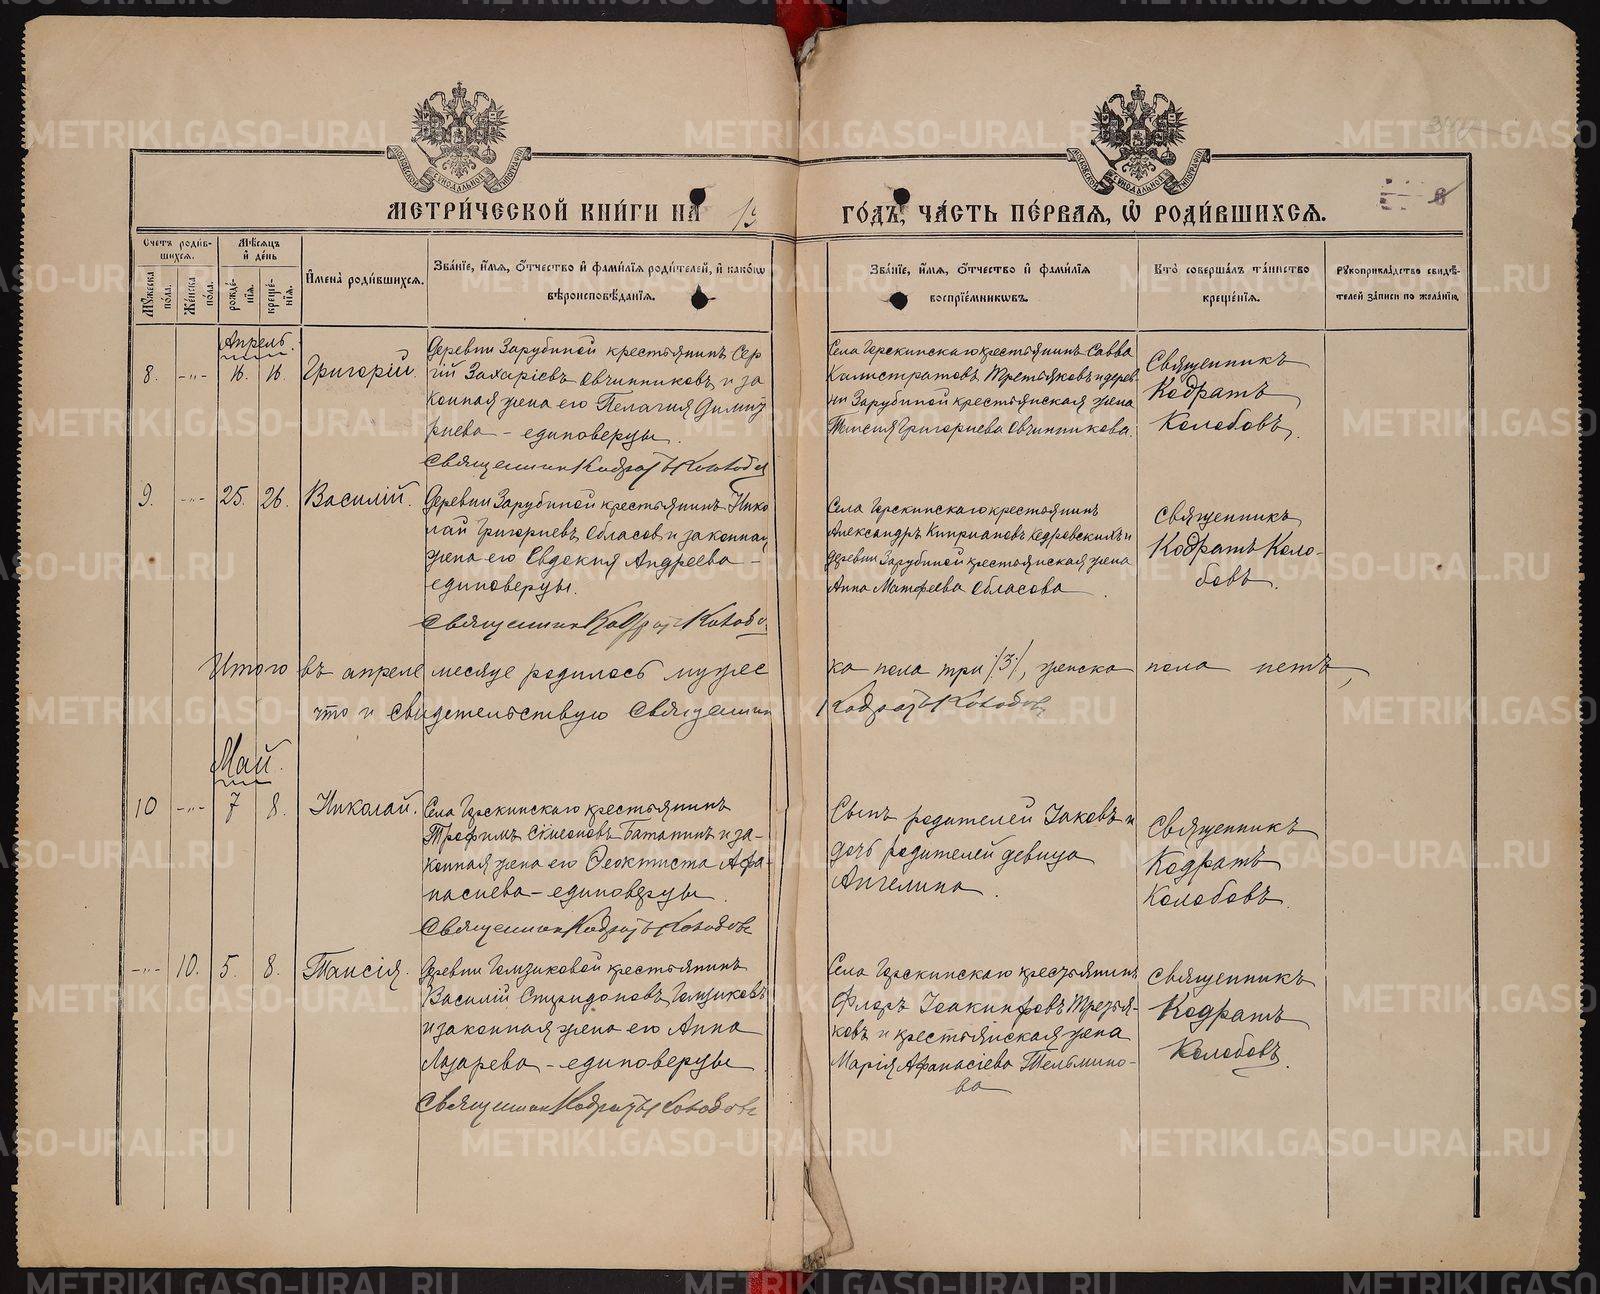 МОСКОВСКОЙ СѴНОДАЛЬНОЙ ТИПОГРАФІИ
МОСКОВСКОЙ СѴНОДАЛЬНОЙ ТИПОГРАФІИ
МЕТРИ́ЧЕСКОЙ КНИ́ГИ НА 19
ГО́ДЪ, ЧА́СТЬ ПЕ́РВАЯ, Ѡ РОДИ́ВШИХСЯ.
Счетъ роди́в-
шихся.
Мѣ́сяцъ
и҆ де́нь
Мꙋ́жеска
по́ла.
Же́нска
по́ла.
рожде́-
нїя.
креще́-
нїя.
И҆мена̀ роди́вшихся.
Зва́нїе, и҆́мя, ѻ҆́тчество и҆ фами́лїѧ роди́телей, и҆ како́гѡ
вѣроисповѣ́данїѧ.
Зва́нїе, и҆́мя, ѻ҆́тчество и҆ фами́лїѧ
воспрїе́мникѡвъ.
Кто̀ соверша́лъ та́инство
креще́нїѧ.
Рꙋкоприкла́дство свидѣ́-
телей за́писи по жела́нїю.
Апрель.
8. -"- 16. 16. Григорій.
Деревни Зарубиной крестьянинъ Сер
гій Захаріевъ Овчинниковъ и за
конная жена его Пелагия Димит
риева - единоверцы.
Священник Кодратъ Колобов
Села Горскинскаго крестьянинъ Савва
Калистратовъ Третьяковъ и дерев
ни Зарубиной крестьянская жена
Таисия Григориева Овчинникова.
Священникъ
Кодратъ
Колобовъ.
9. -"- 25. 26. Василій.
Деревни Зарубиной крестьянинъ Нико
лай Григориевъ Обласовъ и законная
жена его Евдокия Андреева -
единоверцы.
Священник Кодрат Колобов
Села Горскинскаго крестьянинъ
Александръ Киприановъ Кедровскихъ и
деревни Зарубиной крестьянская жена
Анна Матфеева Обласова.
Священникъ
Кодратъ Коло-
бовъ.
Итого въ апреле месяце родилось мужес
ка пола три /3/, женска пола нетъ,
что и свидетельствую Священник
Кодратъ Колобовъ
Май.
10 -"- 7 8. Николай.
Села Горскинскаго крестьянинъ
Трофимъ Симеоновъ Батанинъ и за-
конная жена его Феоктиста Афа-
насиева - единоверцы.
Священник Кодратъ Колобовъ
Сынъ родителей Іаковъ и
дочь родителей девица
Ангелина.
Священникъ
Кодратъ
Колобовъ.
-"- 10. 5. 8. Таисія.
Деревни Гомзиковой крестьянинъ
Василій Спиридоновъ Гомзиковъ
и законная жена его Анна
Лазарева - единоверцы
Священник Кодратъ Колобовъ
Села Горскинскаго крестьянинъ
Флоръ Іоакинфовъ Третья-
ковъ и крестьянская жена
Марія Афанасіева Тельмино-
ва
Священникъ
Кодратъ
Колобовъ.
METRIKI.GASO-URAL.RU